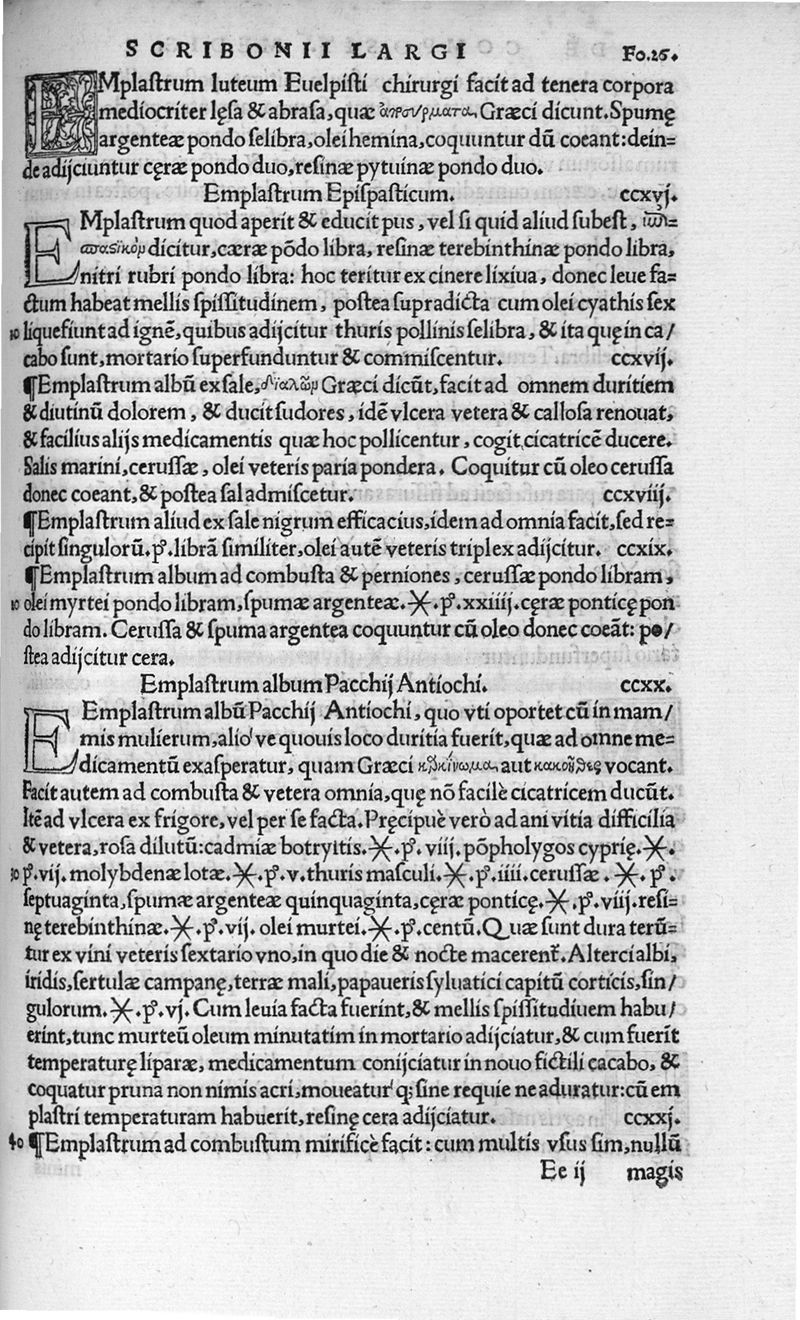 SCRIBONII LARGI Fo.26.
EMplastrum luteum Euelpisti chirurgi facit ad tenera corpora
mediocriter lęsa & abrasa, quæ ἀποσύρματα, Græci dicunt. Spumę
argenteæ pondo selibra, olei hemina, coquuntur dū coeant: dein=
de adijciuntur cęræ pondo duo, resinæ pytuinæ pondo duo.
Emplastrum Epispasticum. ccxvj.
EMplastrum quod aperit & educit pus, vel si quid aliud subest, ἐπι=
σπαστικὸμ dicitur, cæræ põdo libra, resinæ terebinthinæ pondo libra,
nitri rubri pondo libra: hoc teritur ex cinere lixiua, donec leue fa=
ctum habeat mellis spissitudinem, postea supradicta cum olei cyathis sex
10 liquefiunt ad ignē, quibus adijcitur thuris pollinis selibra, & ita quę in ca/
cabo sunt, mortario superfunduntur & commiscentur. ccxvij.
¶Emplastrum albū ex sale, διαλῶμ Græci dicūt, facit ad omnem duritiem
& diutinū dolorem, & ducit sudores, idē vlcera vetera & callosa renouat,
& facilius alijs medicamentis quæ hoc pollicentur, cogit cicatricē ducere.
Salis marini, cerussæ, olei veteris paria pondera. Coquitur cū oleo cerussa
donec coeant, & postea sal admiscetur. ccxviij.
¶Emplastrum aliud ex sale nigrum efficacius, idem ad omnia facit, sed re=
cipit singulorū. p. librā similiter, olei autē veteris triplex adijcitur. ccxix.
¶Emplastrum album ad combusta & perniones, cerussæ pondo libram,
20 olei myrtei pondo libram, spumæ argenteæ. X. p. xxiiij. cęræ ponticę pon
do libram. Cerussa & spuma argentea coquuntur cū oleo donec coeāt: po/
stea adijcitur cera.
Emplastrum album Pacchij Antiochi. ccxx.
EMplastrum albū Pacchij Antiochi, quo vti oportet cū in mam/
mis mulierum, alio've quouis loco duritia fuerit, quæ ad omne me=
dicamentū exasperatur, quam Græci καρκίνωμα, aut κακοῦθες vocant.
Facit autem ad combusta & vetera omnia, quę nõ facilè cicatricem ducūt.
Itē ad vlcera ex frigore, vel per se facta. Pręcipuè verò ad ani vitia difficilia
& vetera, rosa dilutū: cadmiæ botryitis. X. p. viij. põpholygos cyprię. X.
30 p. vij. molybdenæ lotæ. X. p. v. thuris masculi. X. p. iiii. cerussæ. X. p.
septuaginta, spumæ argenteæ quinquaginta, cęræ ponticę. X. p. viij. resi=
nę terebinthinæ. X. p. vij. olei murtei. X. p. centū. Quæ sunt dura terū=
tur ex vini veteris sextario vno, in quo die & nocte macerent̃. Alterci albi,
iridis, sertulæ campanę, terræ mali, papaueris syluatici capitū corticis, sin/
gulorum. X. p. vj. Cum leuia facta fuerint, & mellis spissitudiuem habu/
erint, tunc murteū oleum minutatim in mortario adijciatur, & cum fuerit
temperaturę liparæ, medicamentum conijciatur in nouo fictili cacabo, &
coquatur pruna non nimis acri, moueatur'q; sine requie ne aduratur: cū em
plastri temperaturam habuerit, resinę cera adijciatur. ccxxj.
40 ¶Emplastrum ad combustum mirificè facit: cum multis vsus sim, nullū
Ee ij magis